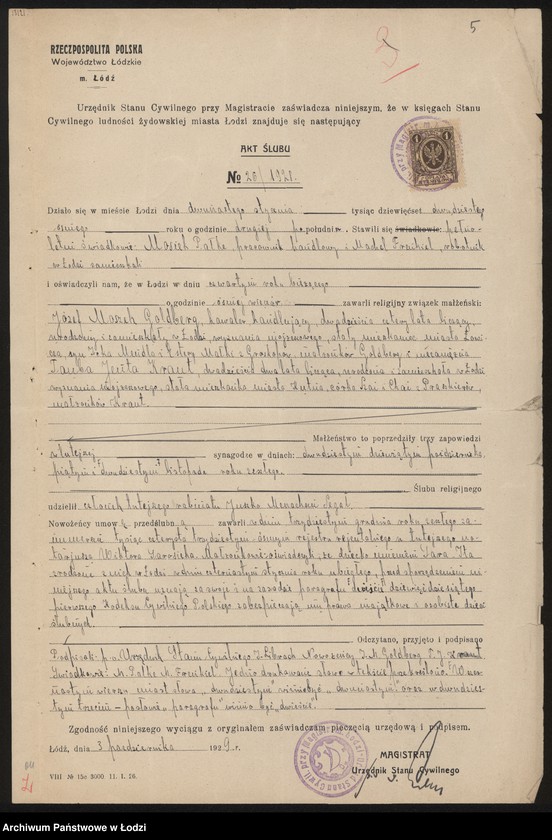 5
RZECZPOSPOLITA POLSKA
Województwo Łódzkie
m. Łódź
Urzędnik Stanu Cywilnego przy Magistracie zaświadcza niniejszym, że w księgach Stanu
Cywilnego ludności żydowskiej miasta Łodzi znajduje się następujący
AKT ŚLUBU
№ 26/1928.
Działo się w mieście Łodzi dnia dwunastego stycznia tysiąc dziewięćset dwudziestego
ósmego roku o godzinie drugiej po południu. Stawili się świadkowie: pełno-
letni świadkowie: Moszek Patke pracownik handlowy i Majlech Frenkiel, robotnik
w Łodzi zamieszkali
i oświadczyli nam, że w Łodzi w dniu czwartym roku bieżącego
o godzinie ósmej wieczór zawarli religijny związek małżeński:
Józef Moszek Goldberg, kawaler handlujący, dwadzieścia cztery lata liczący,
urodzony i zamieszkały w Łodzi, wyznania mojżeszowego, stały mieszkaniec miasta
syn małżonków Goldberg i niezamężna
Tauba Jenta Kraut, dwadzieścia dwa lata licząca, urodzona i zamieszkała w Łodzi
wyznania mojżeszowego, stała mieszkanka miasta Kutna, córka
małżonków Kraut.
Małżeństwo to poprzedziły trzy zapowiedzi
w tutejszej synagodze w dniach: dwudziestym dziewiątym października,
piątym i dwunastym listopada roku zeszłego.
Ślubu religijnego
udzielił członek tutejszego rabinatu Menachem Segał.
Nowożeńcy umowę przedślubną zawarli w dniu trzydziestym grudnia roku zeszłego za
numerem tysiąc czterysta trzydziestym ósmym rejestru rejentalnego u tutejszego no-
tarjusza Wiktora Małżonkowie oświadczyli, że dziecko imieniem Sara
zrodzone z nich w Łodzi w dniu czternastym stycznia roku ubiegłego, przed sporządzeniem ni-
niejszego aktu ślubu uznają za swoje i na zasadzie paragrafu dwieście dziewięćdziesiątego
pierwszego Kodeksu Cywilnego Polskiego zabezpieczają mu prawa majątkowe i osobiste dzieci
ślubnych.
Odczytano, przyjęto i podpisano
Podpisali: p.o. Urzędnik Stanu Cywilnego Nowożeńcy J. M. Goldberg T. J. Kraut
Świadkowie: M. Patke M. Frenkiel Jedno drukowane słowo w tekście przekreślono. W
wierszu miast słowa „dwudziestym" winno być „dwunastym" oraz w dwudzies-
tym trzecim — po słowie „paragrafu" winno być „dwieście".
Zgodność niniejszego wyciągu z oryginałem zaświadczam pieczęcią urzędową i podpisem.
Łódź, dnia 3 października 1929 r.
MAGISTRAT
Urzędnik Stanu Cywilnego
VIII № 158 3000 11. I. 26.
Archiwum Państwowe w Łodzi